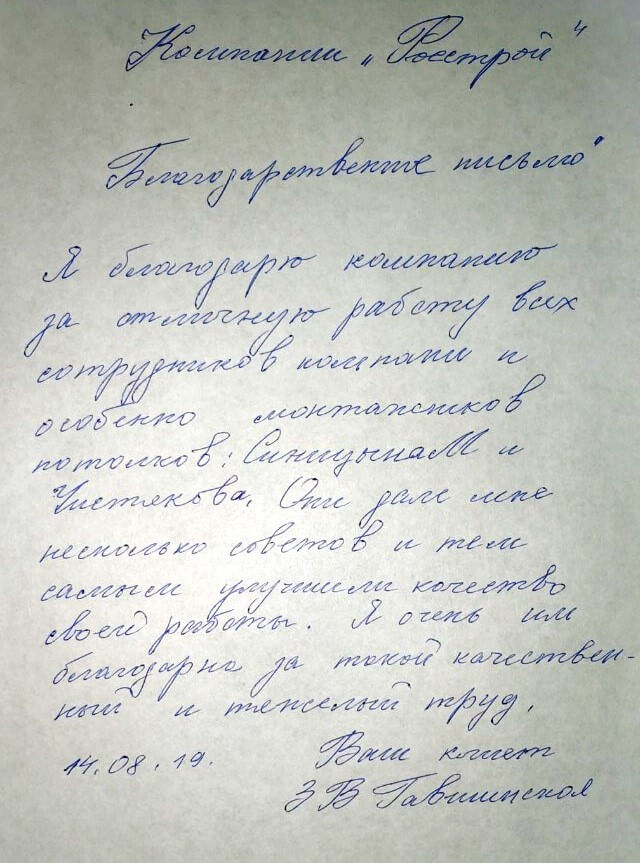 Компании „Росстрой"
Благодарственное письмо"
Я благодарю компанию
за отличную работу всех
сотрудников компании и
особенно монтажников
потолков: Синицына М и
Чистякова. Они дали мне
несколько советов и тем
самым улучшили качество
своей работы. Я очень им
благодарна за такой качествен-
ный и тяжелый труд.
14.08.19. Ваш клиент
З В